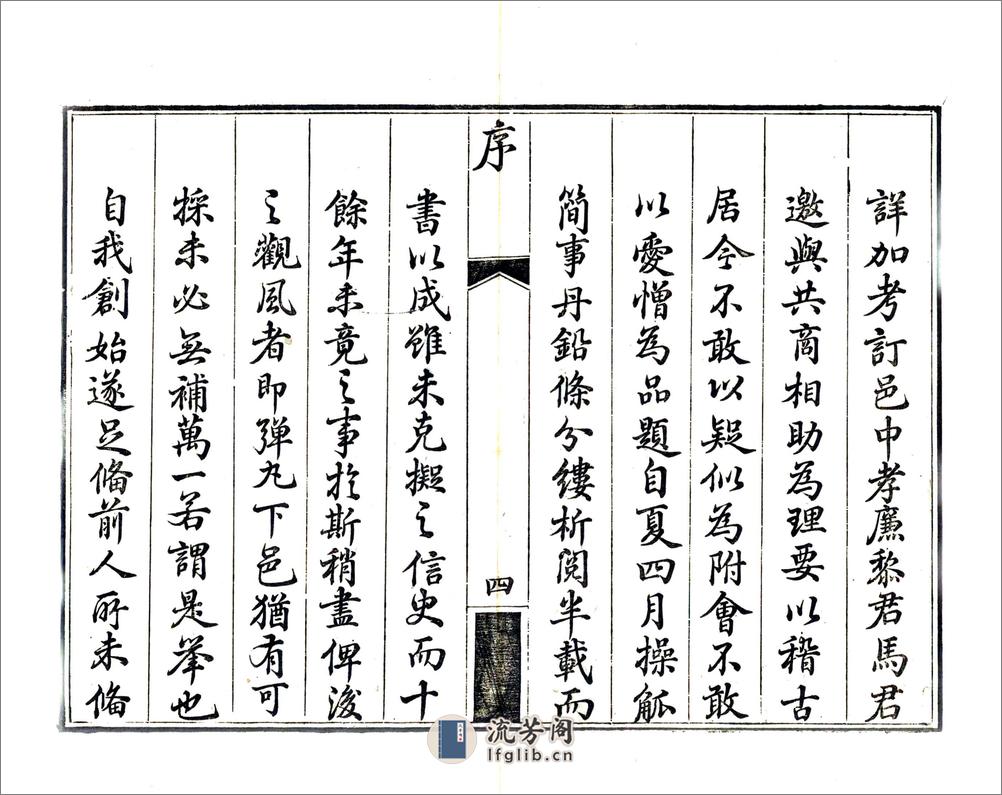 詳加考訂邑中孝廉黎君馬君
邀與共商相助為理要以稽古
居今不敢以疑似為附會不敢
以愛憎為品題自夏四月操觚
簡事丹鉛條分縷析閱半載而
序
四
書以成雖未克擬之信史而十
餘年未竟之事於斯稍盡俾後
之觀風者即弹丸下邑猶有可
採未必無補萬一若謂是舉也
自我創始遂足備前人所未備
流芳阁
lfglib.cn